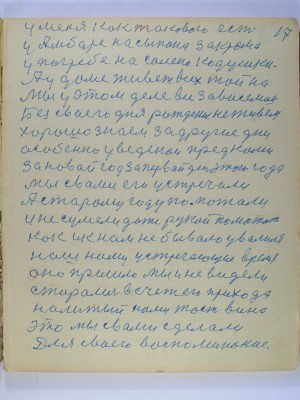 17
у меня как такового ест
у Ямбаре насыпона закрома
у погребе на салено кадушки
А у доме живет всех той на
Мы у этом деле вси зависемая
Без сваего дня рождения не живем
хорошо знаем за другие дни
особенно уведеной предками
За новай год за первай ден этого года
Мы с вами его устречали
А старому году помохали
и не сумели даже рукой помохат
как ик нам не бывало увамися
нами наму устречающие время
оно пришло мы и не видели
старались в счет его прихода
налитый нами тост вина
это мы с вами сделали
Для своего воспоминание.